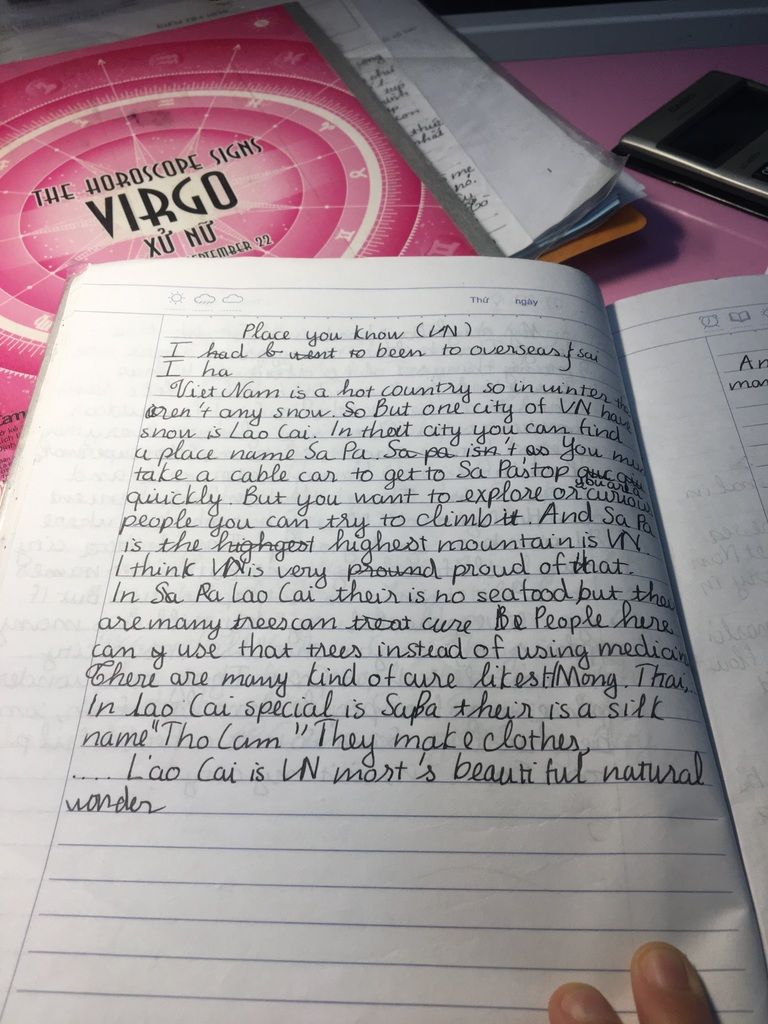 THE HOROSCOPE SIGNS
VIRGO
XỬ NỮ
SEPTEMBER 22
Thứ ngày
Place you know (VN)
I had b went to been to overseas} sai
I ha
Viet Nam is a hot country so in winter the
aren't any snow. So But one city of VN have
snow is Lao Cai. In that city you can find
a place name Sa Pa Sa pa isn't as You mu
take a cable car to get to Sa Pa's top
quickly. But you want to explore or you are a curious
people you can try to climb it. And Sa Pa
is the highgest highest mountain is VN.
I think VN is very pround proud of that.
In Sa Pa Lao Cai their is no seafood but the
are many trees can treat cure Be People here
can y use that trees instead of using medicin
There are many kind of cure likes H'Mong. Thai,..
In Lao Cai special is SaPa their is a silk
name "Tho Cam" They make clother,
..... Lao Cai is VN most's beautiful natural
wonder
An
mar